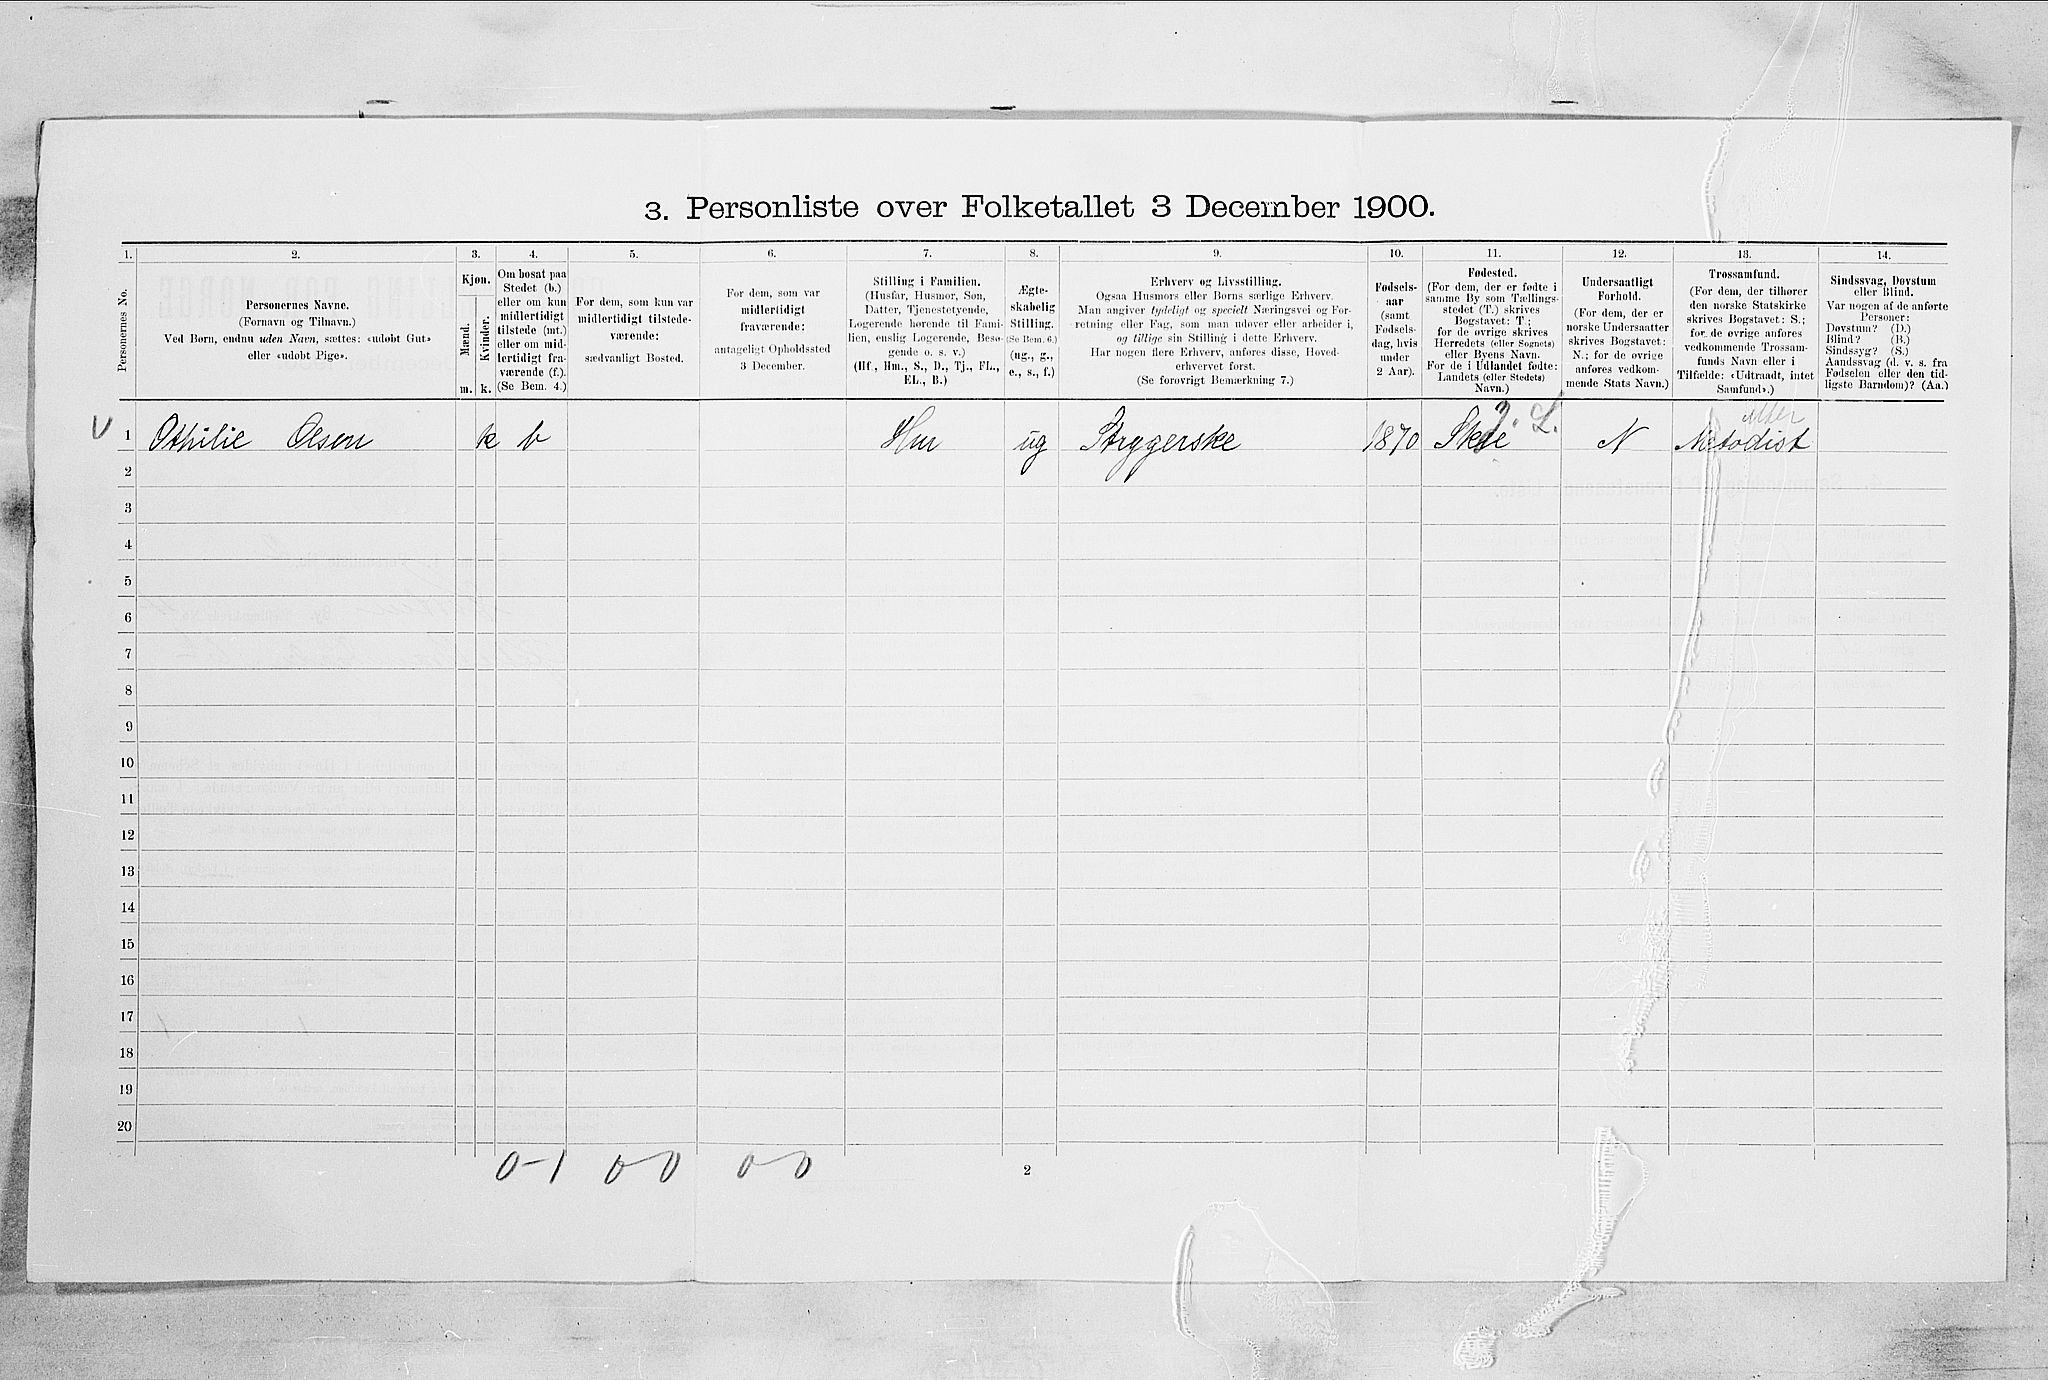 3. Personliste over Folketallet 3 December 1900.
1. 2. 3. 4. 5. 6. 7. 8. 9. 10. 11. 12. 13. 14.
Personernes No.
Personernes Navne.
(Fornavn og Tilnavn.)
Ved Børn, endnu uden Navn, sættes: «udøbt Gut»
eller «udøbt Pige».
Kjøn.
Mænd.
Kvinder.
m. k.
Om bosat paa
Stedet (b.)
eller om kun
midlertidigt
tilstede (mt.)
eller om mid-
lertidigt fra-
værende (f.).
(Se Bem. 4.)
For dem, som kun var
midlertidigt tilstede-
værende:
sædvanligt Bosted.
For dem, som var
midlertidigt
fraværende:
antageligt Opholdssted
3 December.
Stilling i Familien.
(Husfar, Husmor, Søn,
Datter, Tjenestetyende,
Logerende hørende til Fami-
lien, enslig Logerende, Besø-
gende o. s. v.)
(Hf., Hm., S., D., Tj., FL.,
EL., B.)
Ægte-
skabelig
Stilling.
(Se Bem. 6.)
(ug., g.,
e., s., f.)
Erhverv og Livsstilling.
Ogsaa Husmors eller Børns særlige Erhverv.
Man angiver tydeligt og specielt Næringsvei og For-
retning eller Fag, som man udøver eller arbeider i,
og tillige sin Stilling i dette Erhverv.
Har nogen flere Erhverv, anføres disse, Hoved-
erhvervet først.
(Se forøvrigt Bemærkning 7.)
Fødsels-
aar
(samt
Fødsels-
dag, hvis
under
2 Aar).
Fødested.
(For dem, der er fødte i
samme By som Tællings-
stedet (T.) skrives
Bogstavet: T.;
for de øvrige skrives
Herredets (eller Sognets)
eller Byens Navn.
For de i Udlandet fødte:
Landets (eller Stedets)
Navn.)
Undersaatligt
Forhold.
(For dem, der er
norske Undersaatter
skrives Bogstavet:
N.; for de øvrige
anføres vedkom-
mende Stats Navn.)
Trossamfund.
(For dem, der tilhører
den norske Statskirke
skrives Bogstavet: S.;
for de øvrige anføres
vedkommende Trossam-
funds Navn eller i
Tilfælde: «Udtraadt, intet
Samfund».)
Sindssvag, Døvstum
eller Blind.
Var nogen af de anførte
Personer:
Døvstum? (D.)
Blind? (B.)
Sindssyg? (S.)
Aandssvag (d. v. s. fra
Fødselen eller den tid-
ligste Barndom)? (Aa.)
V 1 Othilie Olsen k b Hm ug Strygerske 1870 N Metodist
2
3
4
5
6
7
8
9
10
11
12
13
14
15
16
17
18
19
20
0-1 0 0 0 0
2